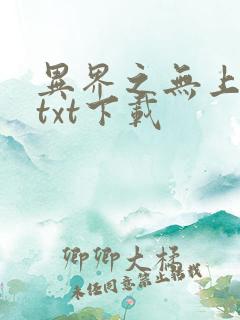 異界之無上
txt下載
卿卿大橘
未經同意禁止轉載